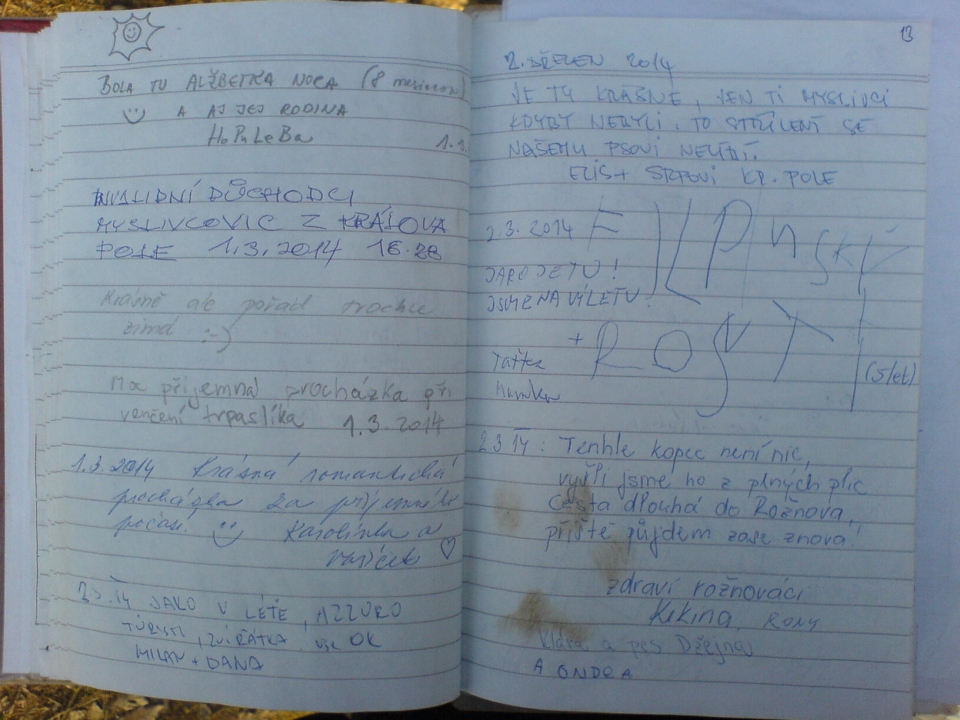 BOLA TU ALŽBETKA NOCA (8 mesiacov)
A AJ JEJ RODINA
HoPuLeBa
1.3.
INVALIDNÍ DŮCHODCI
MYSLIVCOVIC Z KRÁLOVA
POLE 1.3.2014 16.28
Krásně ale pořád trochu
zima :-)
Moc příjemná procházka při
venčení trpaslíka 1.3.2014
1.3.2014 Krásná romantická
procházka za příjemného
počasí. Karolínka a
Vašíček
2.3.14 JAKO V LÉTĚ, AZZURO
TURISTI, ZVÍŘÁTKA, vše OK
MILAN + DANA
13
2. BŘEZEN 2014
JE TU KRÁSNE, JEN TI MYSLIVCI
KDYBY NEBYLI. TO STŘÍLENÍ SE
NAŠEMU PSOVI NELÍBÍ.
KR. POLE
2.3.2014 FILIPINSKÝ
JARO JE TU!
JSME NA VÝLETU!
+ ROSTÍ
Taťka (5 let)
Mamka
2.3.14: Tenhle kopec není nic,
vyšli jsme ho z plných plic
Cesta dlouhá do Rožnova,
příště půjdem zase znova!
zdraví rožnováci
Kikina, RONY
Klára a pes Džejna
A ONDRA